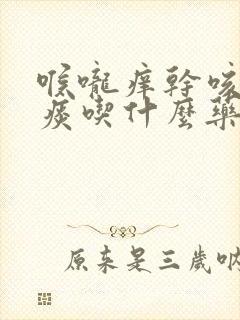 喉嚨痒幹咳
痰喫什麼藥
原来是三歲吶